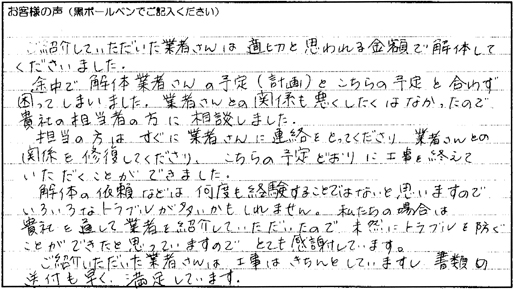 お客様の声（黒ボールペンでご記入ください）
ご紹介していただいた業者さんは適切と思われる金額で解体して
くださいました。
途中で解体業者さんの予定（計画）とこちらの予定と合わず
困ってしまいました。業者さんとの関係も悪くしたくはなかったので
貴社の担当者の方に相談しました。
担当の方はすぐに業者さんに連絡をとってくださり、業者さんとの
関係を修復してくださり、こちらの予定どおりに工事を終えて
いただくことができました。
解体の依頼などは何度も経験することではないと思いますので
いろいろなトラブルが多いかもしれません。私たちの場合は
貴社を通して業者を紹介していただいたので未然にトラブルを防ぐ
ことができたと思っていますので、とても感謝しています。
ご紹介いただいた業者さんは、工事はきちんとしていますし書類の
送付も早く、満足しています。